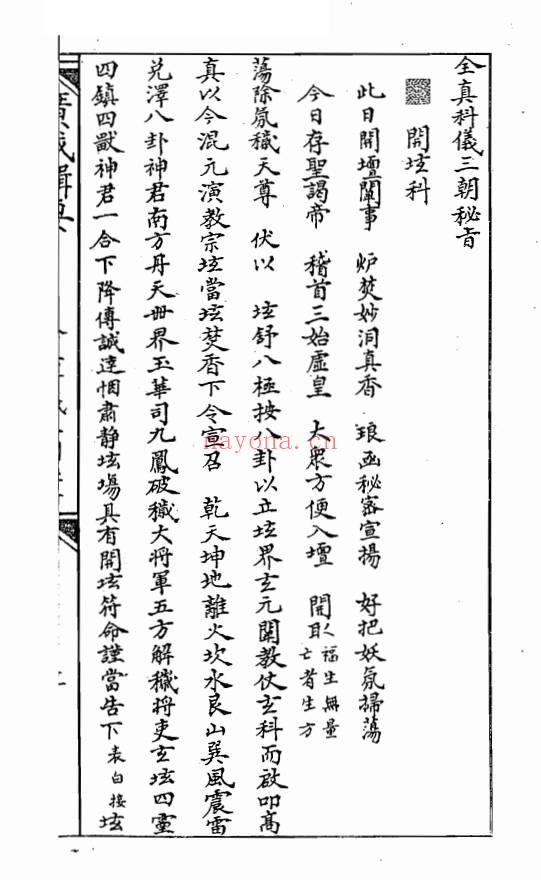 全真科儀三朝秘旨
開坛科
此日開壇闡事　炉焚妙洞真香　琅函秘密宣揚　好把妖氛掃蕩
今日存聖謁帝　稽首三始虛皇　大衆方便入壇　開
福生無量
亡者生方
蕩除氛穢天尊　伏以　坛舒八極按八卦以立坛界玄元闡教仗玄科而啟叩高
真以今混元演教宗坛當坛焚香下令宣召　乾天坤地離火坎水艮山巽風震雷
兑澤八卦神君南方丹天世界玉華司九鳳破穢大将軍五方解穢将吏玄坛四靈
四鎮四獸神君一合下降傳誠達悃肅静坛場具有開坛符命謹當告下表白接坛
nayona.cn